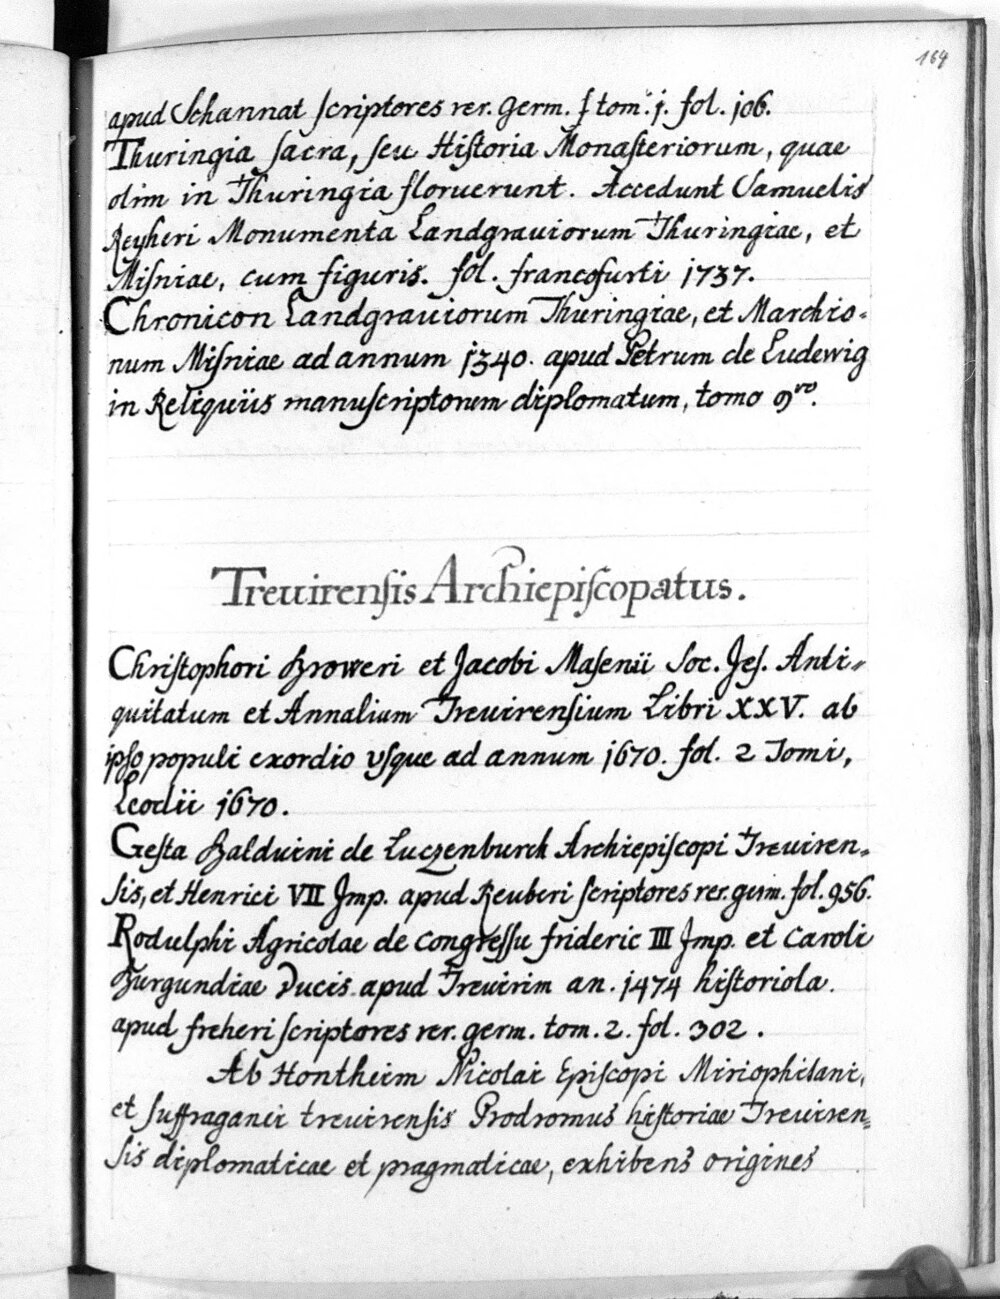 164
apud Schannat scriptores rer. germ. tom. 1. fol. 106.
Thuringia sacra, seu Historia Monasteriorum, quae
olim in Thuringia floruerunt. Accedunt Samuelis
Reyheri Monumenta Landgrauiorum Thuringiae, et
Misniae, cum figuris. fol. francofurti 1737.
Chronicon Landgrauiorum Thuringiae, et Marchio-
num Misniae ad annum 1340. apud Petrum de Ludewig
in Reliquiis manuscriptorum diplomatum, tomo 9no.
Treuirensis Archiepiscopatus.
Christophori Broweri et Jacobi Masenii Soc. Jes. Anti-
quitatum et Annalium Treuirensium Libri XXV. ab
ipso populi exordio vsque ad annum 1670. fol. 2 Tomi,
Leodii 1670.
Gesta Balduini de Luczenburch Archiepiscopi Treuiren-
sis, et Henrici VII Jmp. apud Reuberi scriptores rer. germ. fol. 956.
Rodulphi Agricolae de congressu frideric III Jmp. et Caroli
Burgundiae Ducis apud Treuirim an. 1474 historiola.
apud freheri scriptores rer. germ. tom. 2. fol. 302.
Ab Hontheim Nicolai Episcopi Miriophitani,
et suffraganei treuirensis Prodromus historiae Treuiren-
sis diplomaticae et pragmaticae, exhibens origines